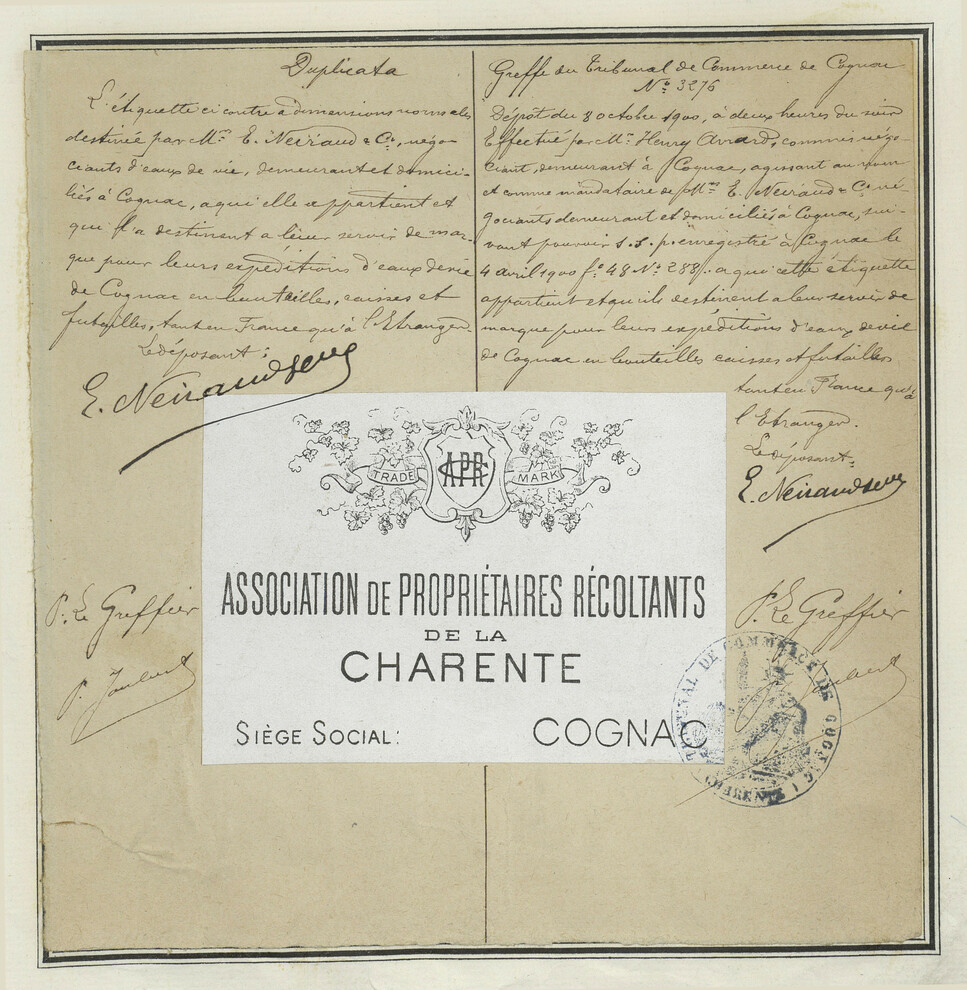 Duplicata
L'étiquette ci contre a dimensions normales
destinée par Mrs E. Neiraud & Cie, négo-
ciants d'eaux de vie, demeurant et domici-
liés à Cognac, a qui elle appartient et
qui l'a destinent a leur servir de mar-
que pour leurs expéditions d'eaux de vie
de Cognac en bouteilles, caisses et
futailles, tant en France qu'à l'Etranger
Le déposant:
E. Neiraud
P. Le Greffier
Greffe du Tribunal de Commerce de Cognac
No 3276
Dépôt du 8 octobre 1900, à deux heures du soir
Effectué par Mr Henry Avrard, commis négo-
ciant, demeurant à Cognac, agissant au nom
et comme mandataire de Mrs E. Neiraud & Cie né-
gociants demeurant et domiciliés à Cognac, sui-
vant pouvoir s.s.p. enregistré à Cognac le
4 avril 1900 fo 48 No 288. a qui cette étiquette
appartient et qu'ils destinent a leur servir de
marque pour leurs expéditions d'eaux de vie
de Cognac en bouteilles caisses et futailles
tant en France qu'à
l'Etranger.
Le déposant:
E. Neiraud
P. Le Greffier
TRADE APR MARK
ASSOCIATION DE PROPRIÉTAIRES RÉCOLTANTS
DE LA
CHARENTE
SIÈGE SOCIAL: COGNAC
TRIBUNAL DE COMMERCE DE COGNAC